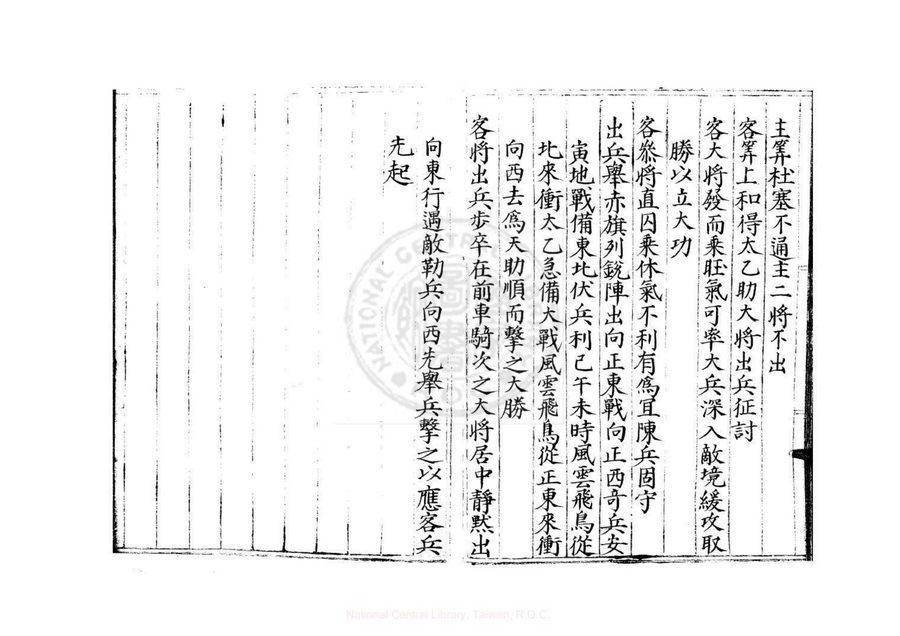 主筭杜塞不通主二將不出
客筭上和得太乙助大將出兵征討
客大將發而乘旺氣可率大兵深入敵境緩攻取
勝以立大功
客叅將直囚乘休氣不利有爲冝陳兵固守
出兵舉赤旗列銳陣出向正東戰向正西奇兵安
寅地戰備東北伏兵利巳午未時風雲飛鳥從
北來衝太乙急備大戰風雲飛鳥從正東來衝
向西去爲天助順而擊之大勝
客將出兵步卒在前車騎次之大將居中靜默出
向東行遇敵勒兵向西先舉兵擊之以應客兵
先起
NATIONAL CENTRAL
National Central Library, Taiwan, R.O.C.